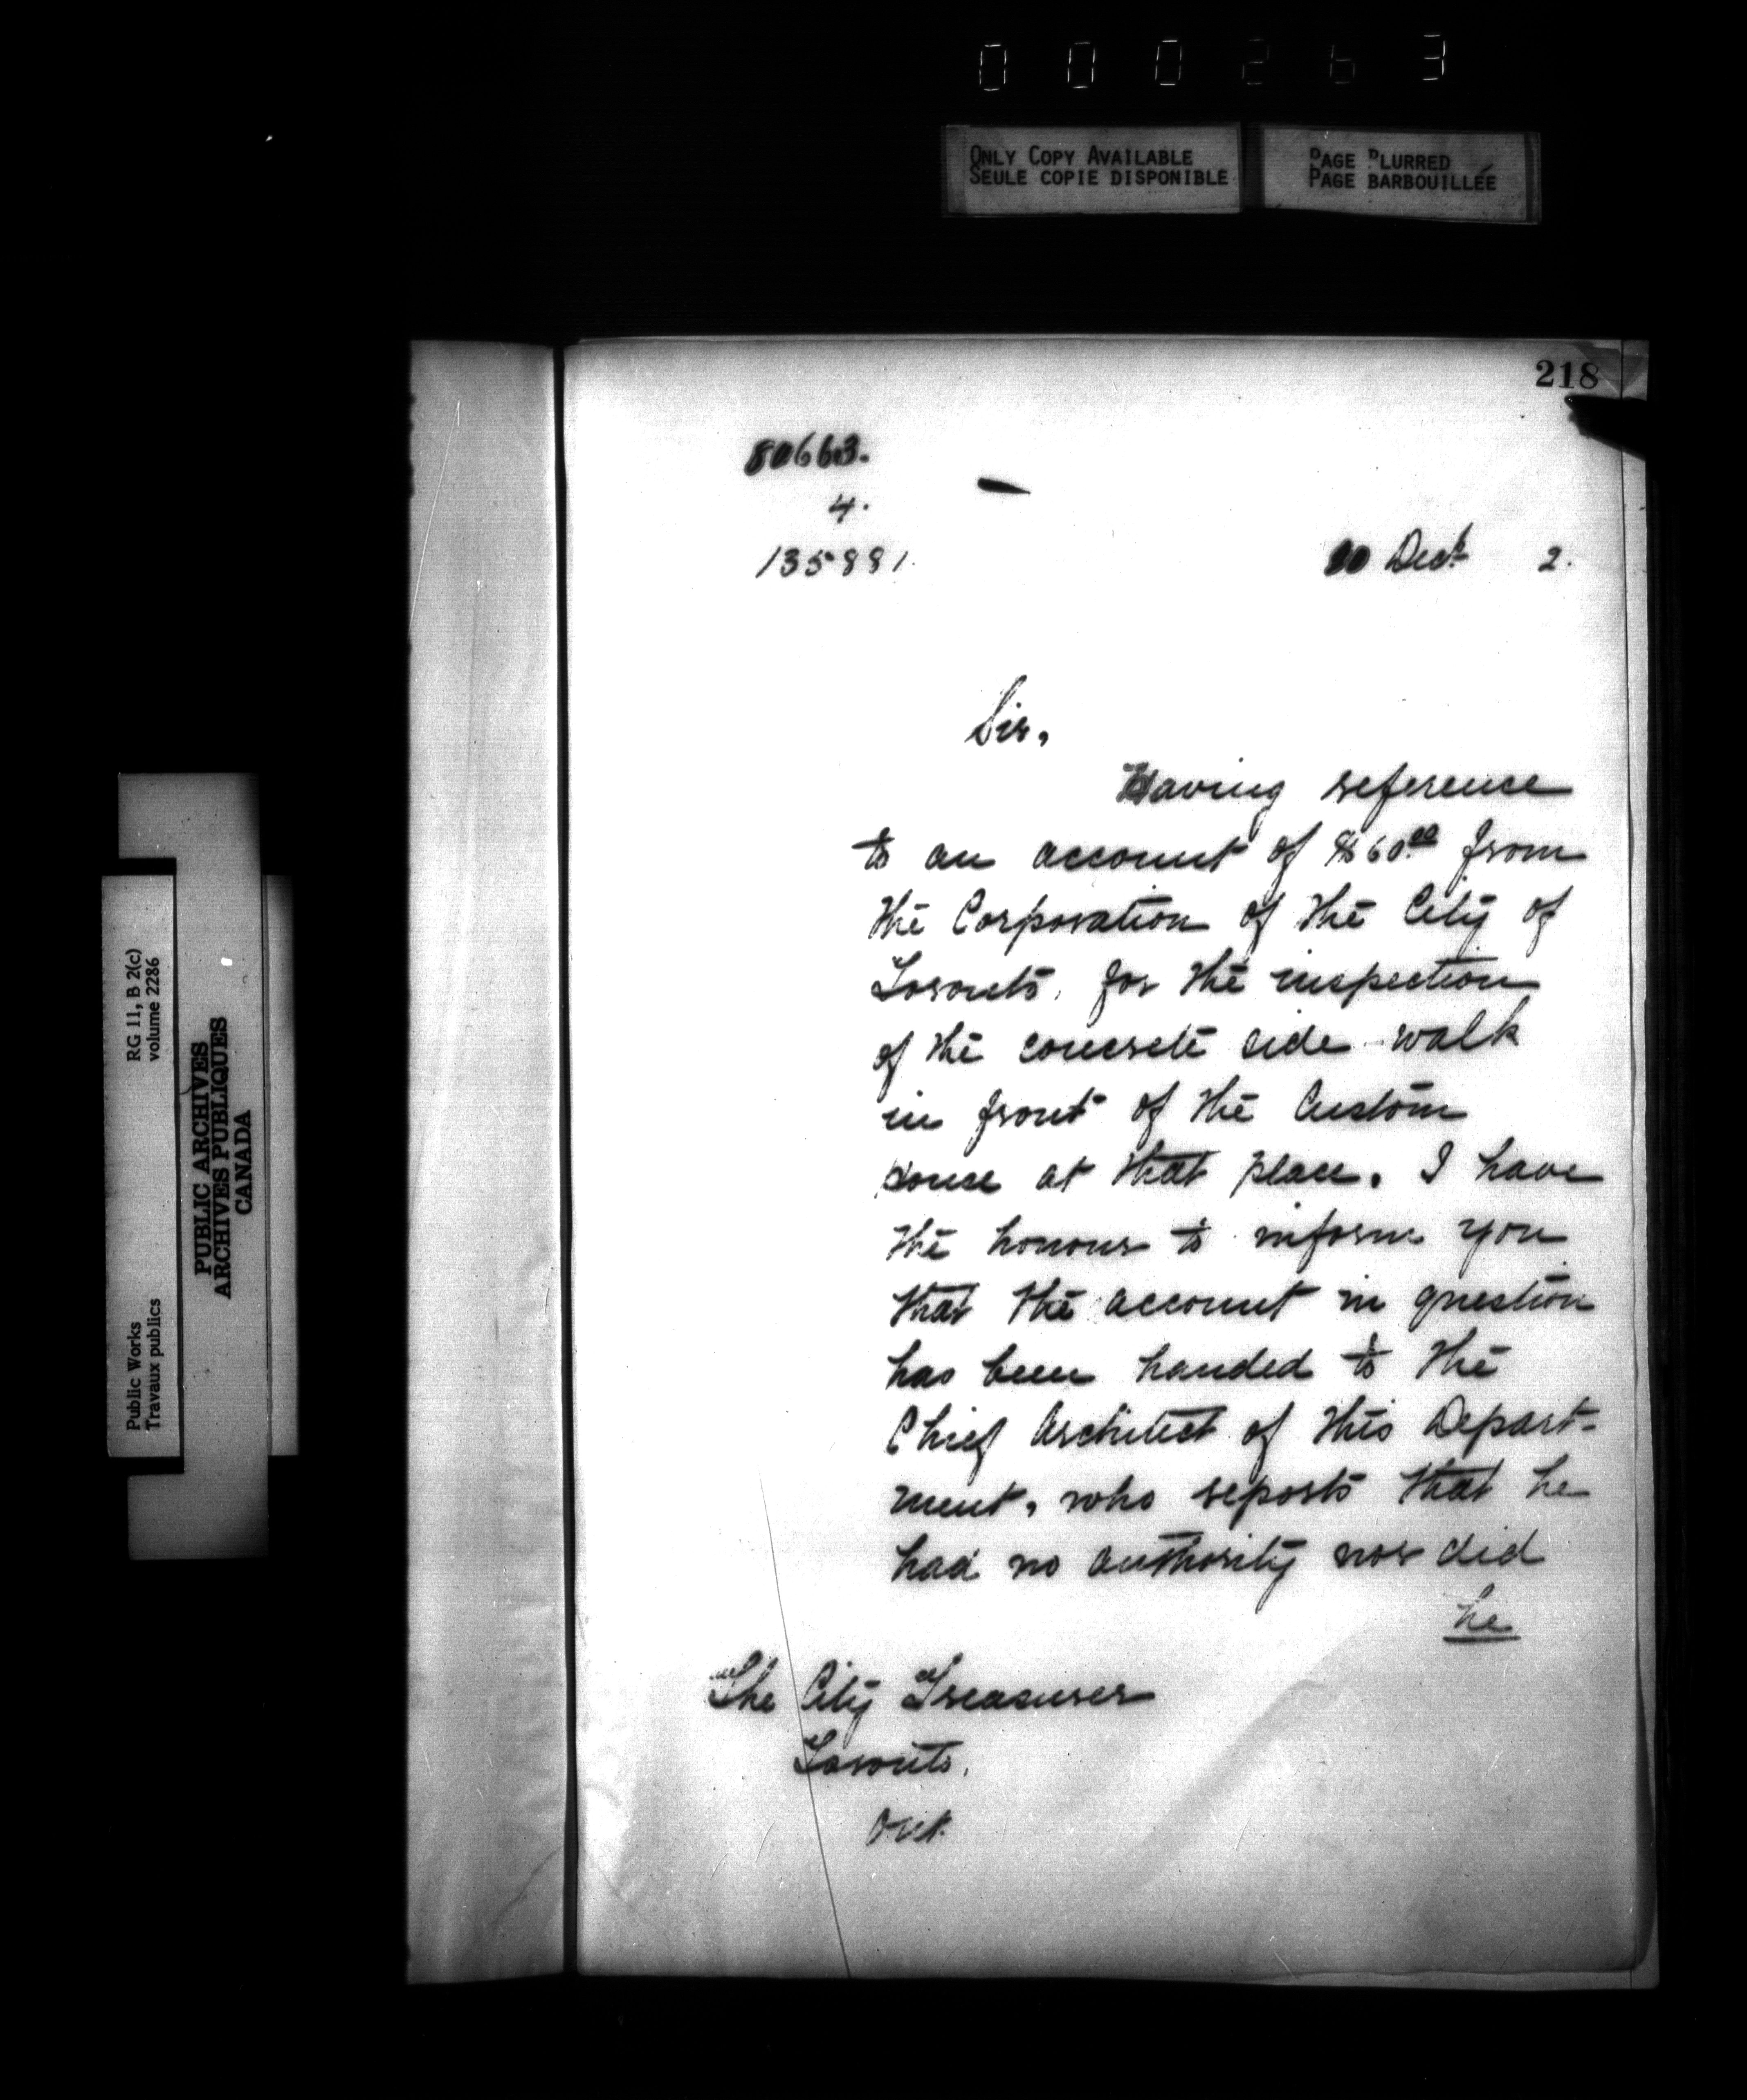 000263
ONLY COPY AVAILABLE
SEULE COPIE DISPONIBLE
PAGE BLURRED
PAGE BARBOUILLÉE
218
80663.
4.
135881.
Dec.r 2.
Sir,
Having reference
to an account of $60.00 from
the Corporation of the City of
Toronto, for the inspection
of the concrete side-walk
in front of the Custom
House at that place. I have
the honour to inform you
that the account in question
has been handed to the
Chief Architect of this Depart-
ment, who reports that he
had no authority nor did
he
The City Treasurer
Toronto,
Ont.
Public Works
Travaux publics
RG 11, B 2(c)
volume 2286
PUBLIC ARCHIVES
ARCHIVES PUBLIQUES
CANADA